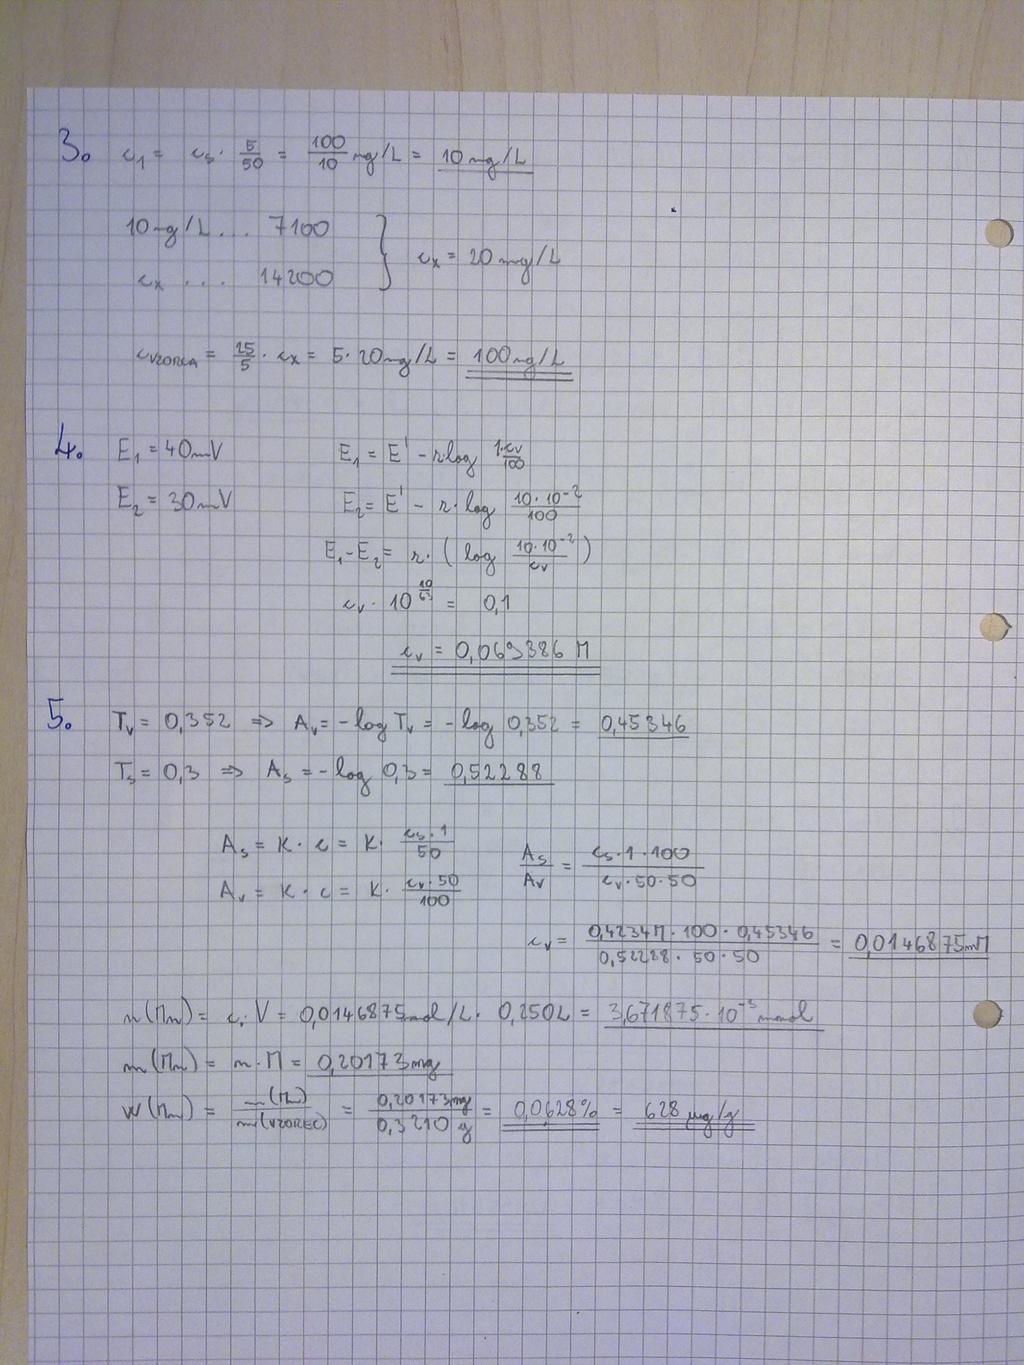 3. c₁ = cₛ · 5/50 = 100/10 mg/L = 10 mg/L
10 mg/L ... 7100
cₓ ... 14200 } cₓ = 20 mg/L
c_VZORCA = 25/5 · cₓ = 5 · 20 mg/L = 100 mg/L
4. E₁ = 40 mV E₁ = E' - r·log 1·cᵥ/100
E₂ = 30 mV E₂ = E' - r · log 10·10⁻²/100
E₁ - E₂ = r · ( log 10·10⁻²/cᵥ )
cᵥ · 10^(10/63) = 0,1
cᵥ = 0,069386 M
5. Tᵥ = 0,352 => Aᵥ = -log Tᵥ = -log 0,352 = 0,45346
Tₛ = 0,3 => Aₛ = -log 0,3 = 0,52288
Aₛ = K · c = K · cₛ·1/50
Aᵥ = K · c = K · cᵥ·50/100
Aₛ/Aᵥ = cₛ·1·100/cᵥ·50·50
cᵥ = 0,4234M · 100 · 0,45346/0,52288 · 50 · 50 = 0,0146875 mM
n(Mn) = c · V = 0,0146875 mmol/L · 0,250L = 3,671875 · 10⁻³ mmol
m(Mn) = n · M = 0,20173 mg
W(Mn) = m(Mn)/m(VZOREC) = 0,20173 mg/0,3210 g = 0,0628 % = 628 μg/g